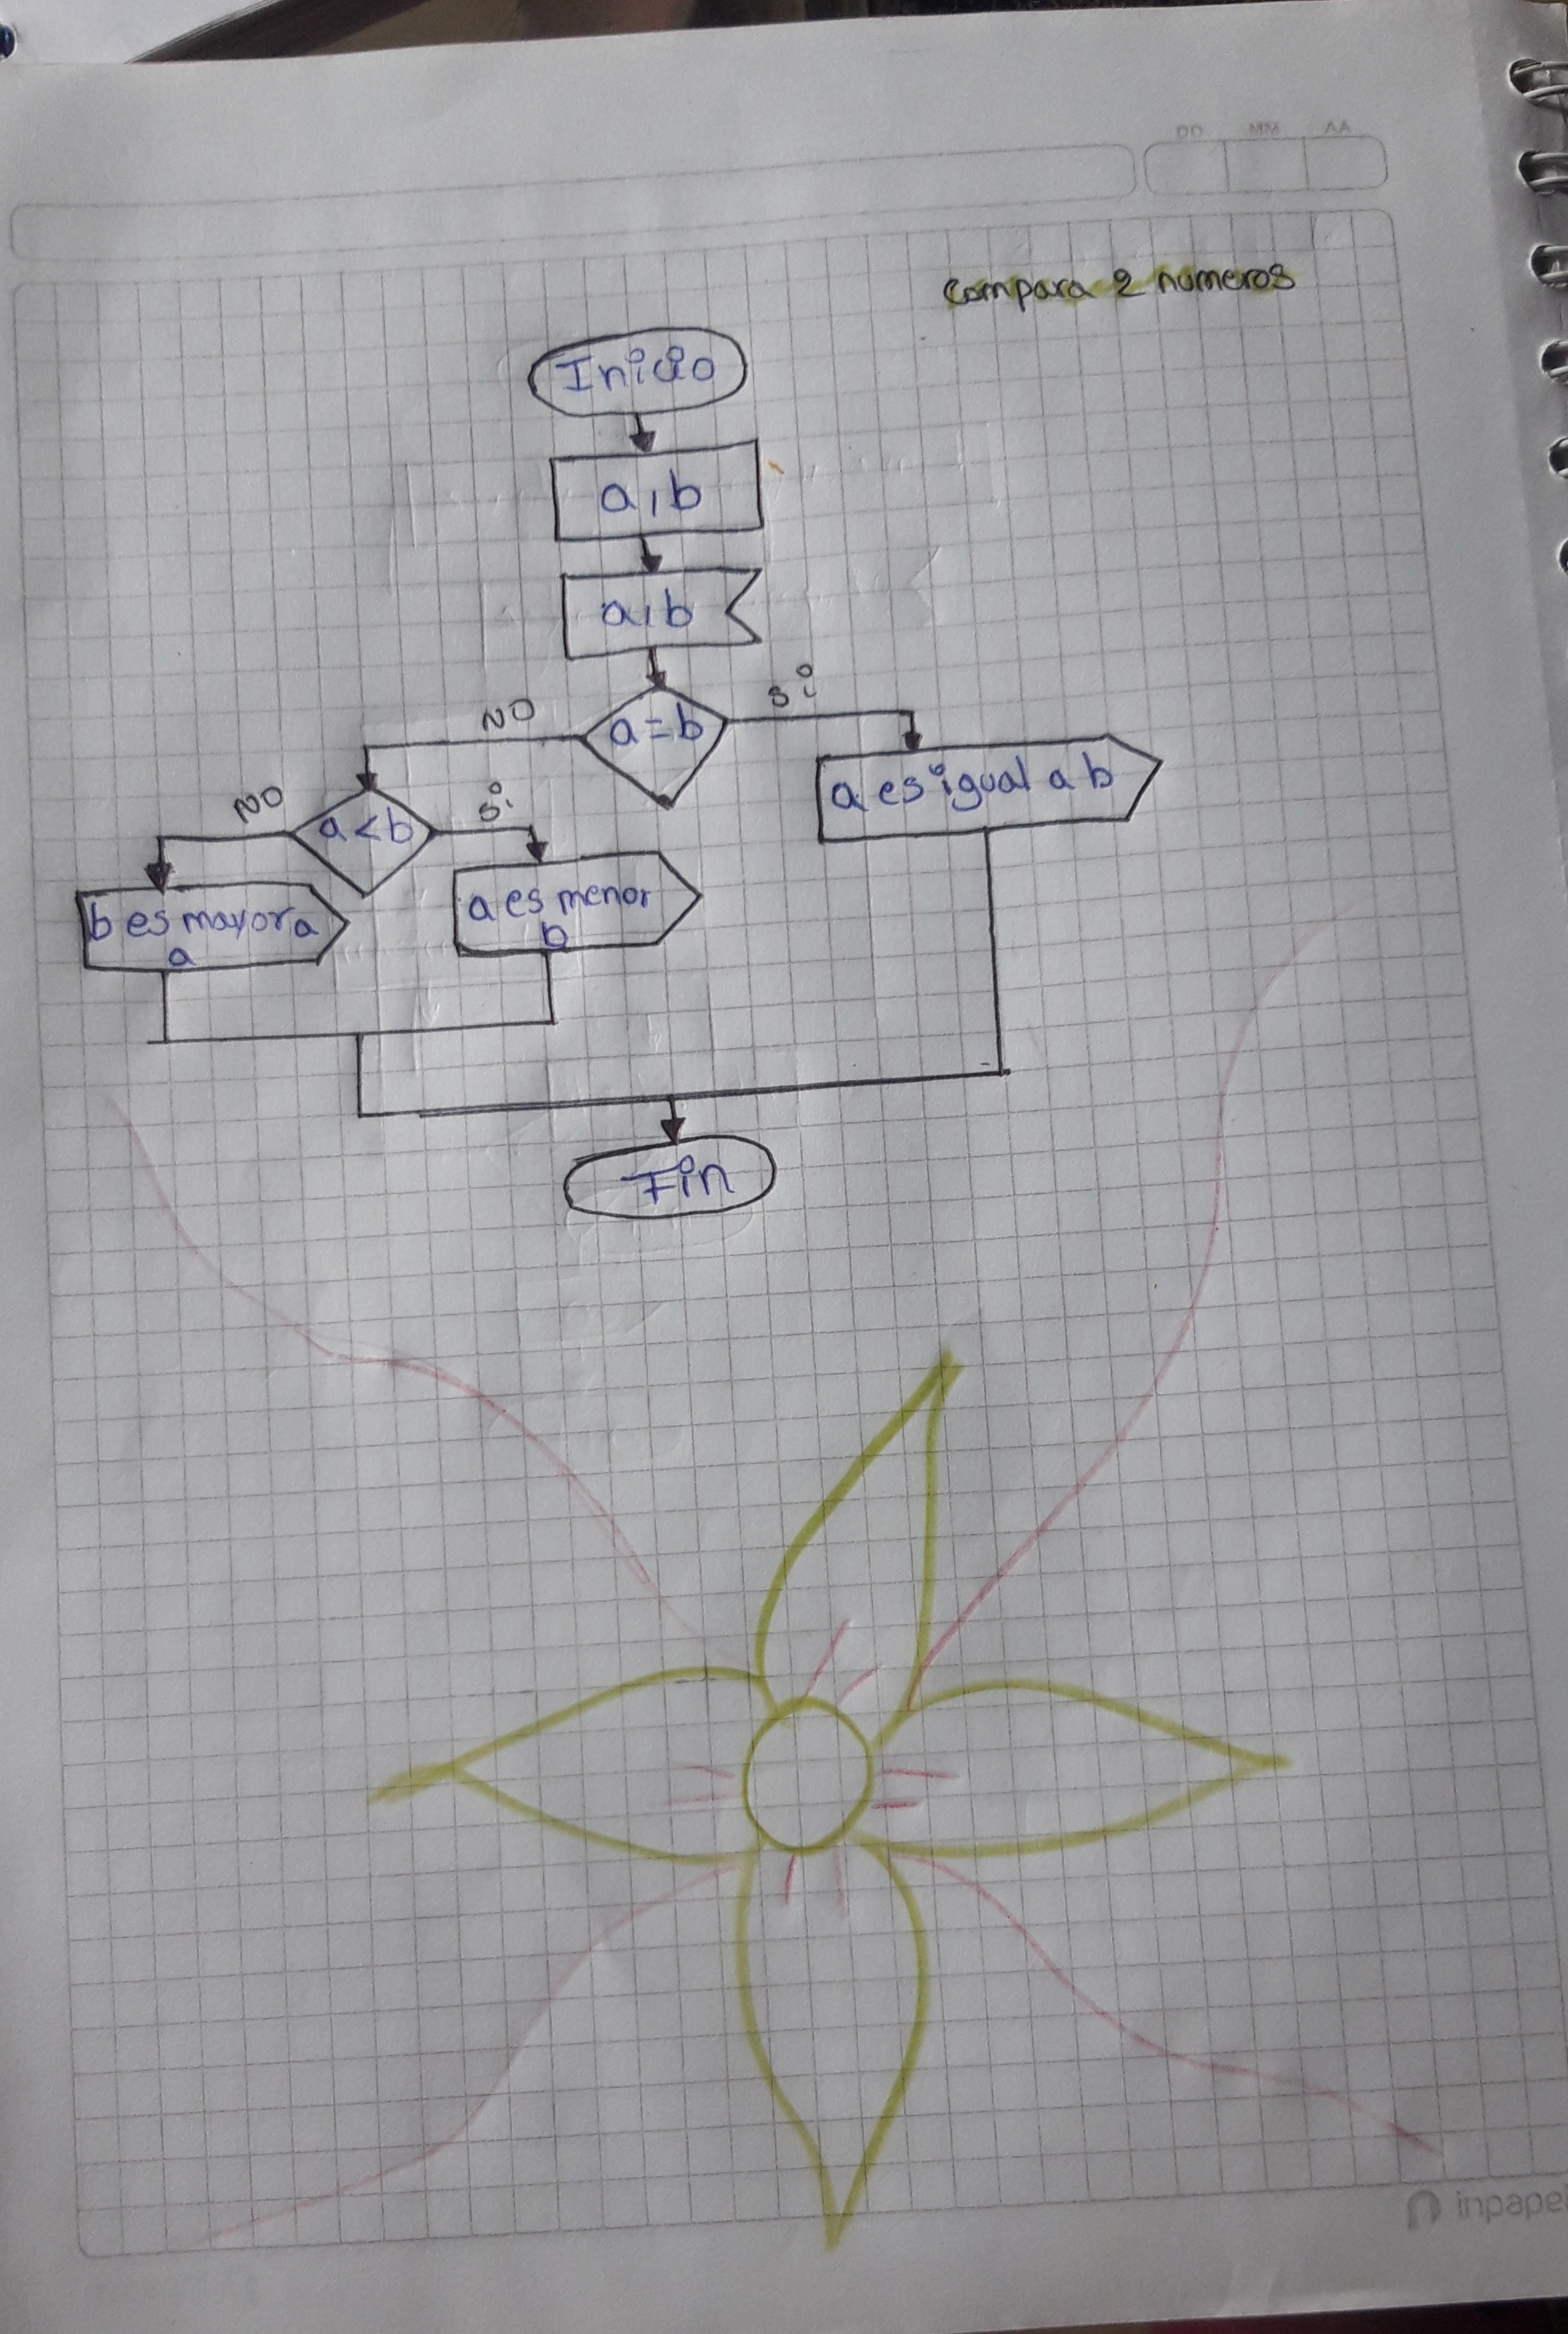 DD MM AA
compara 2 numeros
Inicio
a, b
a, b
a = b
NO
si
a es igual a b
a < b
NO
si
b es mayor a
a
a es menor
b
Fin
inpape